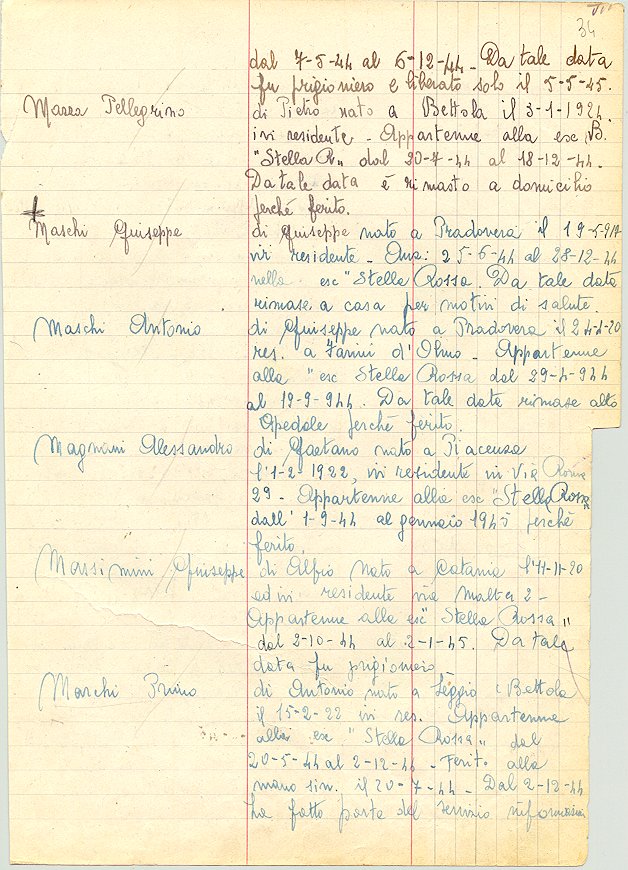 34
dal 7-5-44 al 6-12-44 - Da tale data
fu prigioniero e liberato solo il 5-5-45.
Marea Pellegrino di Pietro nato a Bettola il 3-1-1924
ivi residente - Appartenne alla esc B.
"Stella R" dal 20-7-44 al 18-12-44.
Da tale data é rimasto a domicilio
perché ferito.
Maschi Giuseppe di Giuseppe nato a Pradovera il
ivi residente - 25-6-44 al 28-12-44
nella esc "Stella Rossa. Da tale data
rimase a casa per motivi di salute.
Maschi Antonio di Giuseppe nato a Pradovera il
res. a Farini d'Olmo - Appartenne
alla "esc Stella Rossa dal 29-4-944
al 19-9-944. Da tale data rimase allo
Opedale perché ferito.
Magnani Alessandro di Gaetano nato a Piacenza
l'1-2-1922, ivi residente in Via Roma
29 - Appartenne alla esc "Stella Rossa"
dall'1-9-44 al gennaio 1945 perché
ferito.
Massimini Giuseppe di Alfio nato a Catania l'11-11-20
ed ivi residente via Malta 2 -
Appartenne alla esc "Stella Rossa"
dal 2-10-44 al 2-1-45. Da tale
data fu prigioniero
Marchi Bruno di Antonio nato a Leggio Bettola
il 15-2-22 ivi res. Appartenne
alla esc "Stella Rossa" dal
20-5-44 al 2-12-44 - Ferito alla
mano sin. il 20-7-44 - Dal 2-12-44
ha fatto parte del servizio